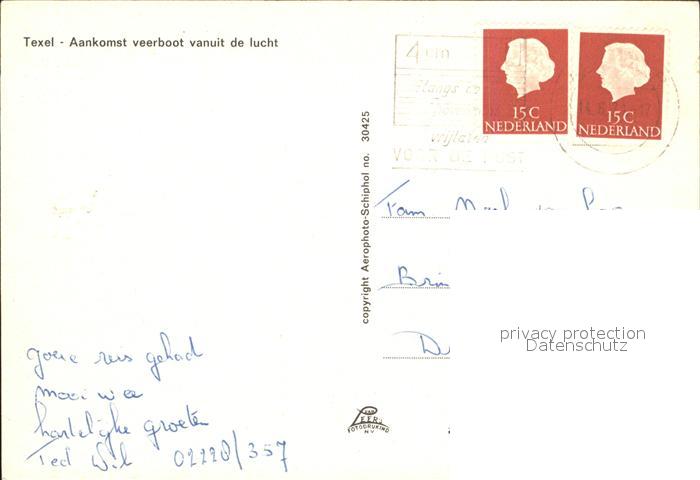 Texel - Aankomst veerboot vanuit de lucht
4 cm
langs
wijlaten
VOOR DE POST
15 C
NEDERLAND
15 C
NEDERLAND
copyright Aerophoto-Schiphol no. 30425
Fam
Brin
D
privacy protection
Datenschutz
goeie reis gehad
mooi wee
hartelijke groeten
Ted Wil 02220/357
VAN
LEER'S
FOTODRUKIND
N.V.